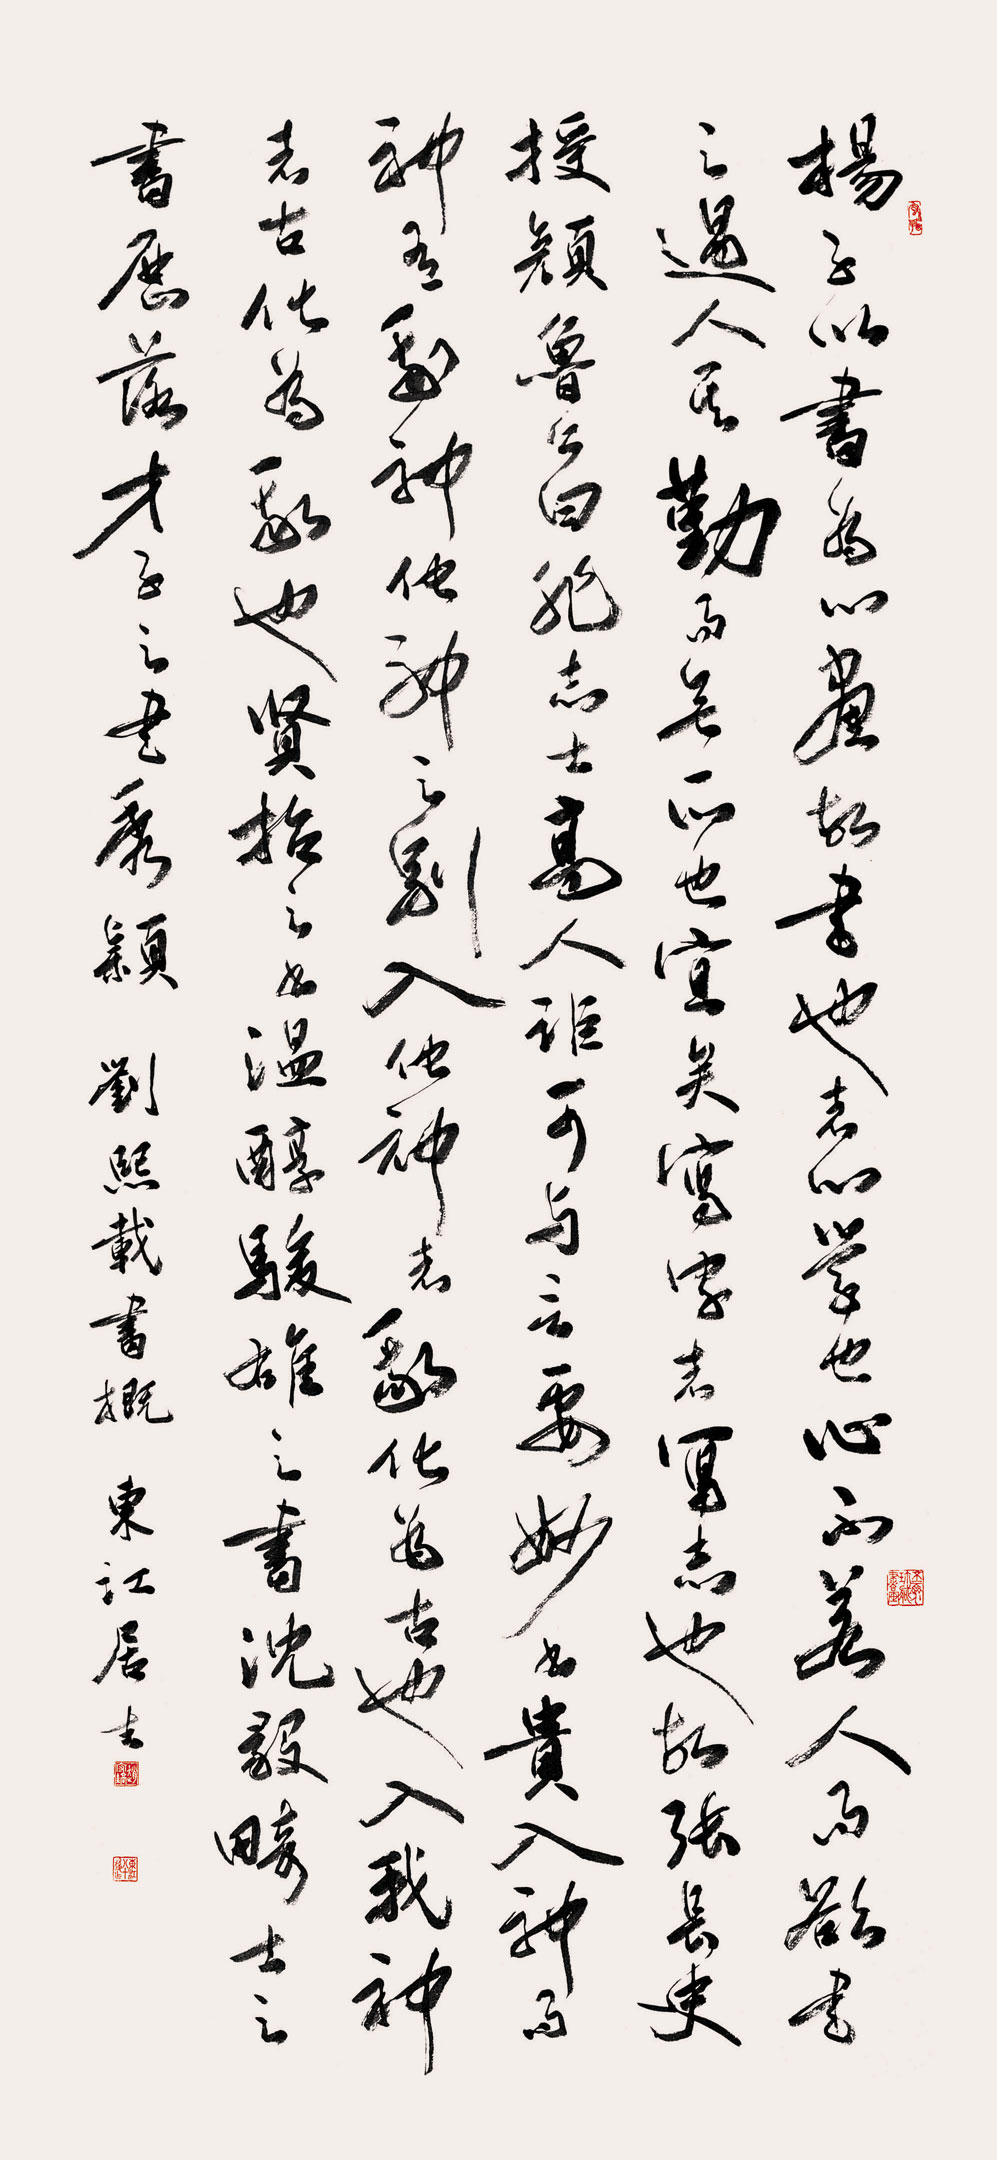 楊子以書為心畫故書也者心學也心不若人而欲書
之過人其勤而無所也宜矣寫字者寫志也故張長史
授顏魯公曰非志士高人詎可與言要妙書貴入神而
神有我神他神之別入他神者我化為古也入我神
者古化為我也賢哲之書溫醇駿雄之書沈毅畸士之
書歷落才子之書秀穎 劉熙載書概 東江居士